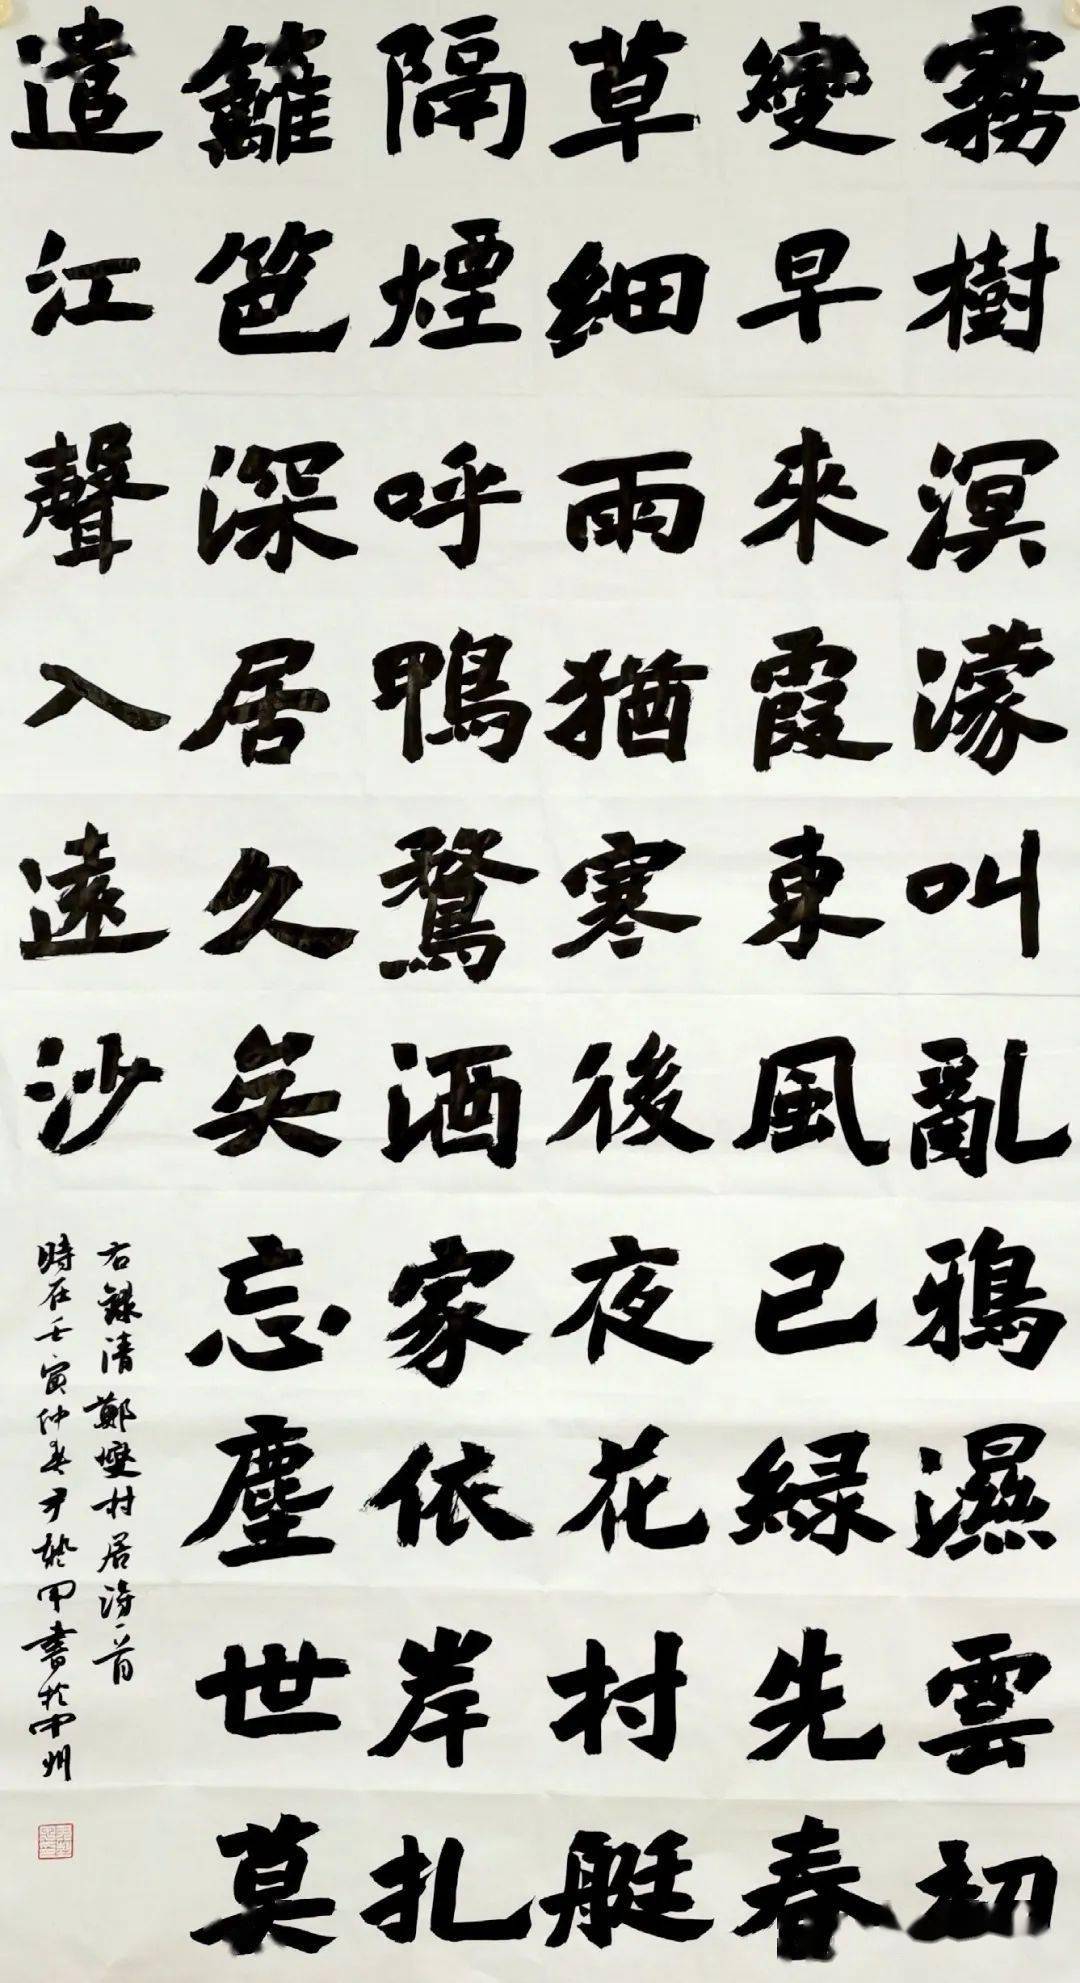 霧樹溟濛叫亂鴉濕雲初
變早來霞東風已綠先春
草細雨猶寒後夜花村艇
隔煙呼鴨鶩酒家依岸扎
籬笆深居久矣忘塵世莫
遣江聲入遠沙
右錄清鄭燮村居詩一首
時在壬寅仲春 甲書於中州